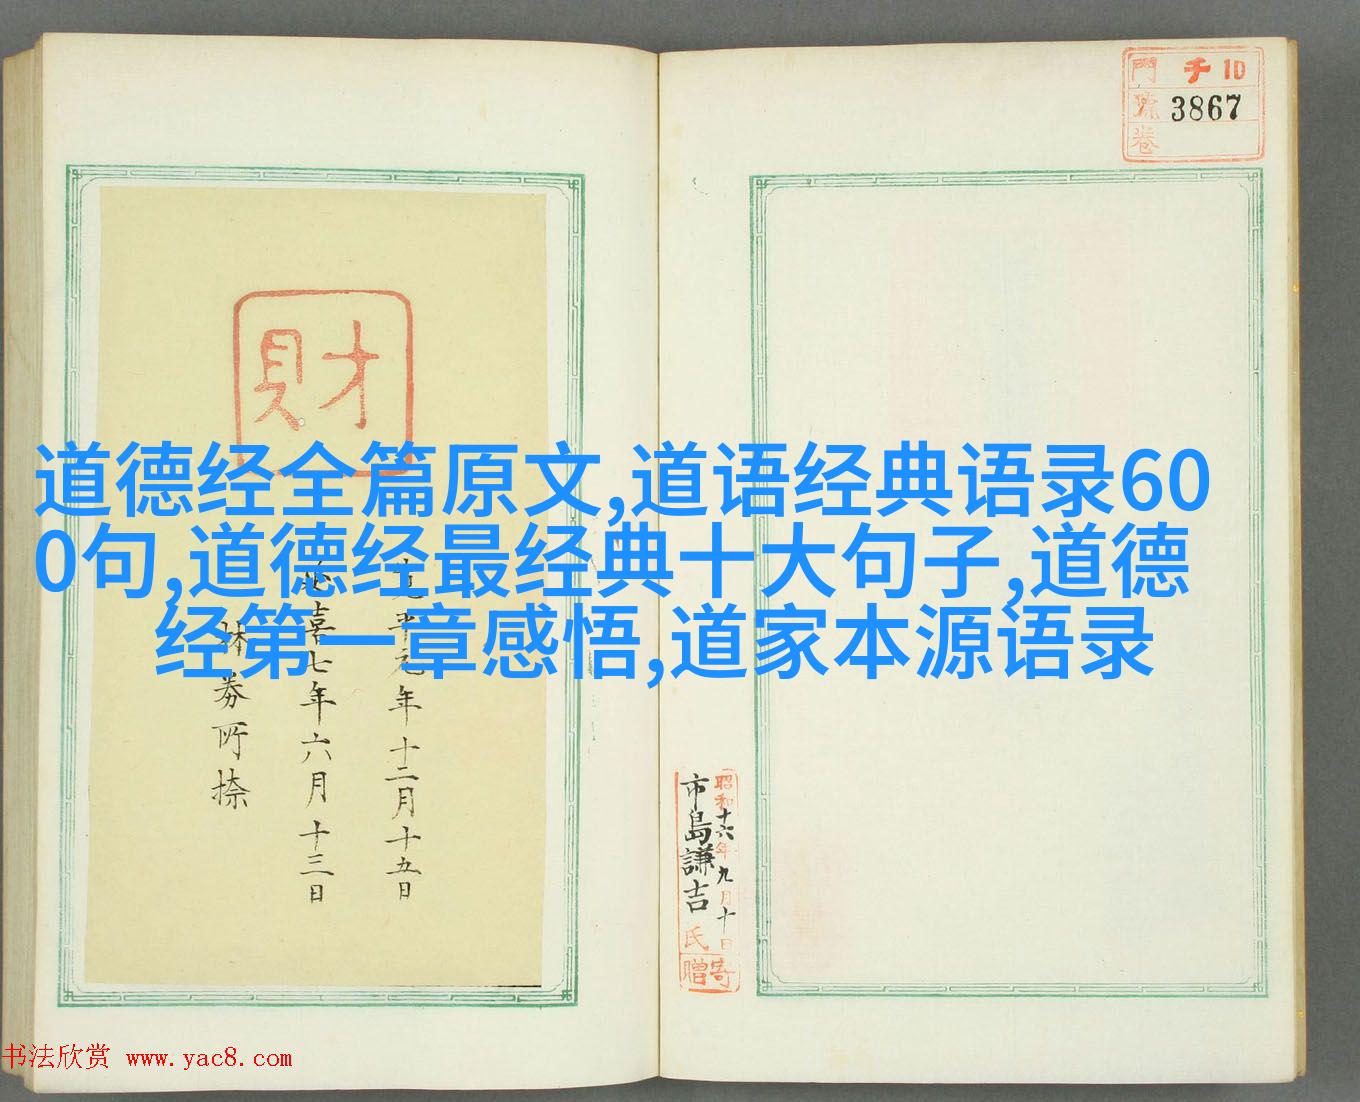 門 チ10
號 3867
卷
財
道德经全篇原文,道语经典语录60
0句,道德经最经典十大句子,道德
经第一章感悟,道家本源语录
年十二月十五日
喜七年六月十三日
昭和十六年九月十日
市島謙吉氏
寄贈
书法欣赏 www.yac8.com